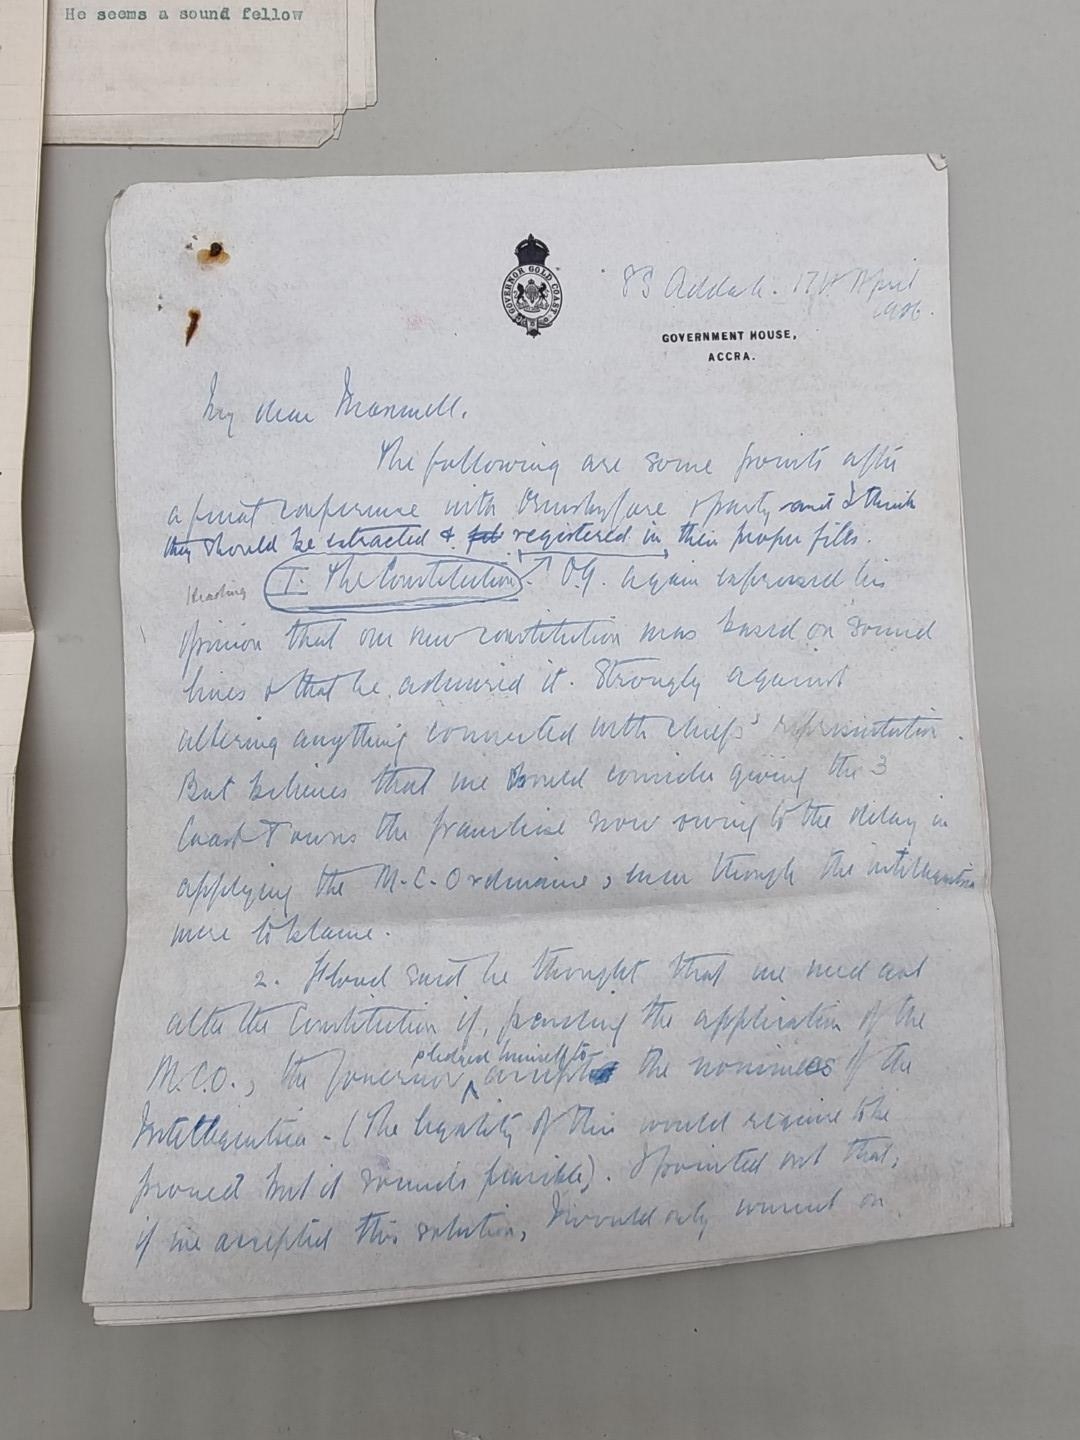 He seems a sound fellow
GOVERNOR GOLD COAST
SS Addah. 17th April
1926.
GOVERNMENT HOUSE,
ACCRA.
My dear Maxwell,
The following are some points after
a final conference with Ormsby Gore & party and I think
they should be extracted & put registered in their proper files.
Heading
I. The Constitution. O.G. again expressed his
opinion that our new constitution was based on sound
lines & that he admired it. Strongly against
altering anything connected with chiefs' representation.
But believes that we should consider giving the 3
Coast Towns the franchise now owing to the delay in
applying the M.C. Ordinance, even though the intelligentsia
were to blame.
2. Flood said he thought that we need not
alter the Constitution if, pending the application of the
M.C.O., the Governor pledged himself to accept the nominees of the
Intelligentsia. (The legality of this would require to be
proved but it sounds feasible). I pointed out that,
if we accepted this solution, I would only consent on